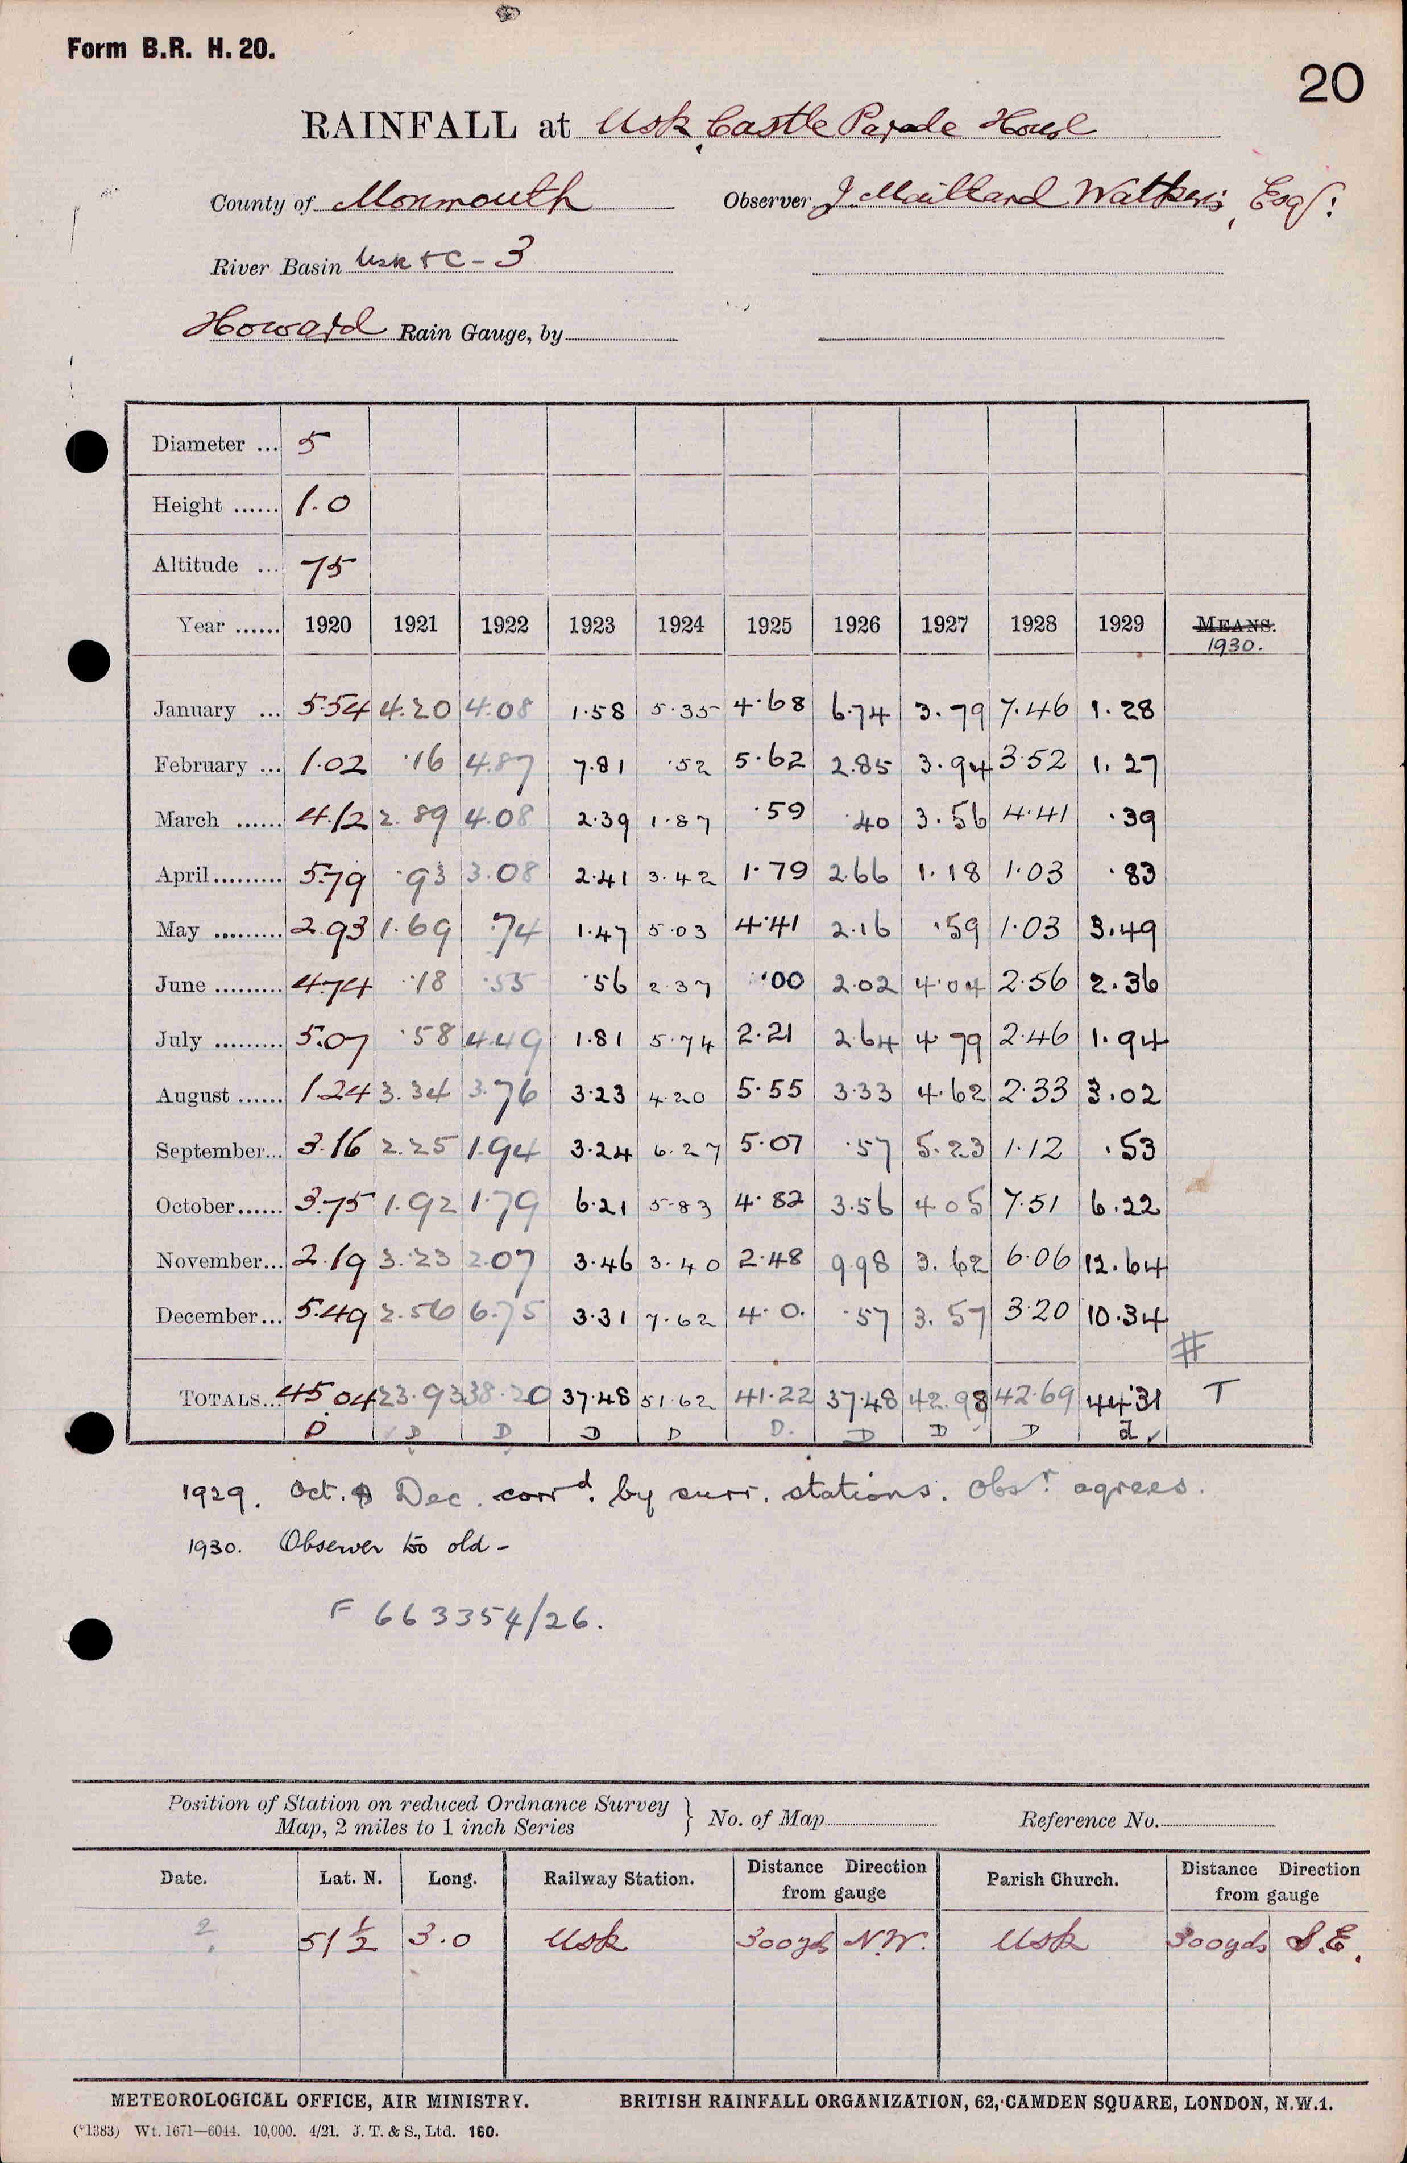 Form B.R. H. 20.
20
RAINFALL at Usk, Castle Parade House
County of Monmouth Observer J. Maitland Watkins, Esqr:
River Basin Usk & C - 3
Howard Rain Gauge, by
Diameter ... 5
Height ...... 1.0
Altitude ... 75
Year ...... 1920 1921 1922 1923 1924 1925 1926 1927 1928 1929 MEANS.
1930.
January ... 5.54 4.20 4.08 1.58 5.35 4.68 6.74 3.79 7.46 1.28
February ... 1.02 .16 4.87 7.81 .52 5.62 2.85 3.94 3.52 1.27
March ...... 4.12 2.89 4.08 2.39 1.87 .59 .40 3.56 4.41 .39
April......... 5.79 .93 3.08 2.41 3.42 1.79 2.66 1.18 1.03 .83
May ......... 2.93 1.69 .74 1.47 5.03 4.41 2.16 .59 1.03 3.49
June ......... 4.74 .18 .55 .56 2.37 .00 2.02 4.04 2.56 2.36
July ......... 5.07 .58 4.49 1.81 5.74 2.21 2.64 4.79 2.46 1.94
August ...... 1.24 3.34 3.76 3.23 4.20 5.55 3.33 4.62 2.33 3.02
September... 3.16 2.25 1.94 3.24 6.27 5.07 .57 5.23 1.12 .53
October...... 3.75 1.92 1.79 6.21 5.83 4.82 3.56 4.05 7.51 6.22
November... 2.19 3.23 2.07 3.46 3.40 2.48 9.98 3.62 6.06 12.64
December... 5.49 2.56 6.75 3.31 7.62 4.0. .57 3.57 3.20 10.34
#
TOTALS... 45.04 23.93 38.20 37.48 51.62 41.22 37.48 42.98 42.69 44.31 T
D D D D D D. D D D d
1929. Oct. & Dec. corrd. by surr. stations. Obsr. agrees.
1930. Observer too old -
F 663354/26.
Position of Station on reduced Ordnance Survey
Map, 2 miles to 1 inch Series } No. of Map Reference No.
Date. Lat. N. Long. Railway Station. Distance Direction from gauge Parish Church. Distance Direction from gauge
? 51 1/2 3.0 Usk 300yds N.W. Usk 300yds S.E.
METEOROLOGICAL OFFICE, AIR MINISTRY. BRITISH RAINFALL ORGANIZATION, 62, CAMDEN SQUARE, LONDON, N.W.1.
(*1383) Wt. 1671—6044. 10,000. 4/21. J. T. & S., Ltd. 160.